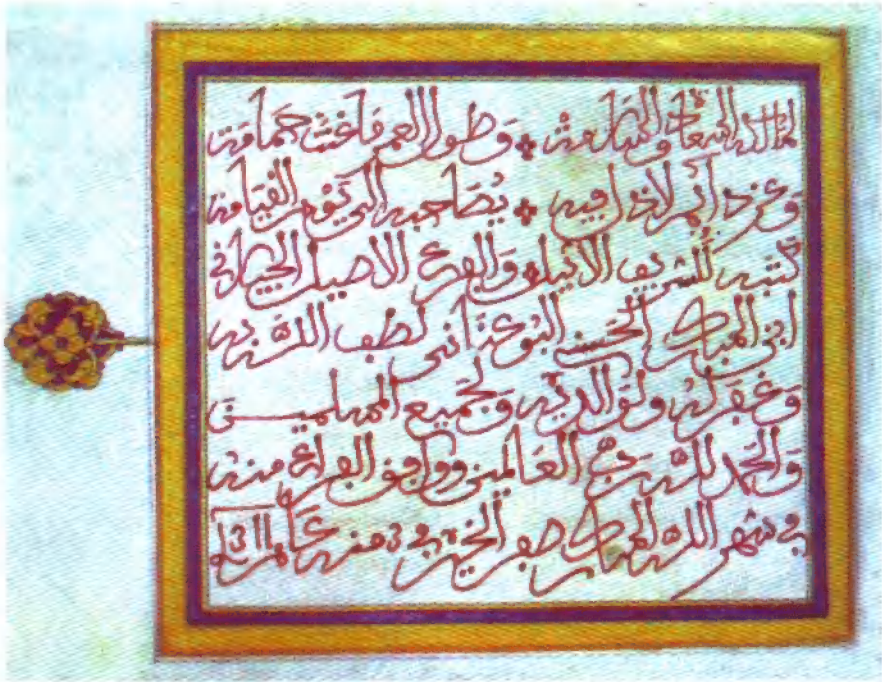 لمالكه السعادة والسلامة وطول العمر ما غنت حمامة
وعز دائم لا ذل فيه يصاحبه الى يوم القيامة
كتبه الشريف الأثيل والفرع الأصيل
ابن المبارك الحسني البوعناني لطف الله به
وغفر له ولوالديه ولجميع المسلمين
والحمد لله رب العالمين ووافق الفراغ منه
في شهر الله المبارك صفر الخير في 3 منه عام 1311